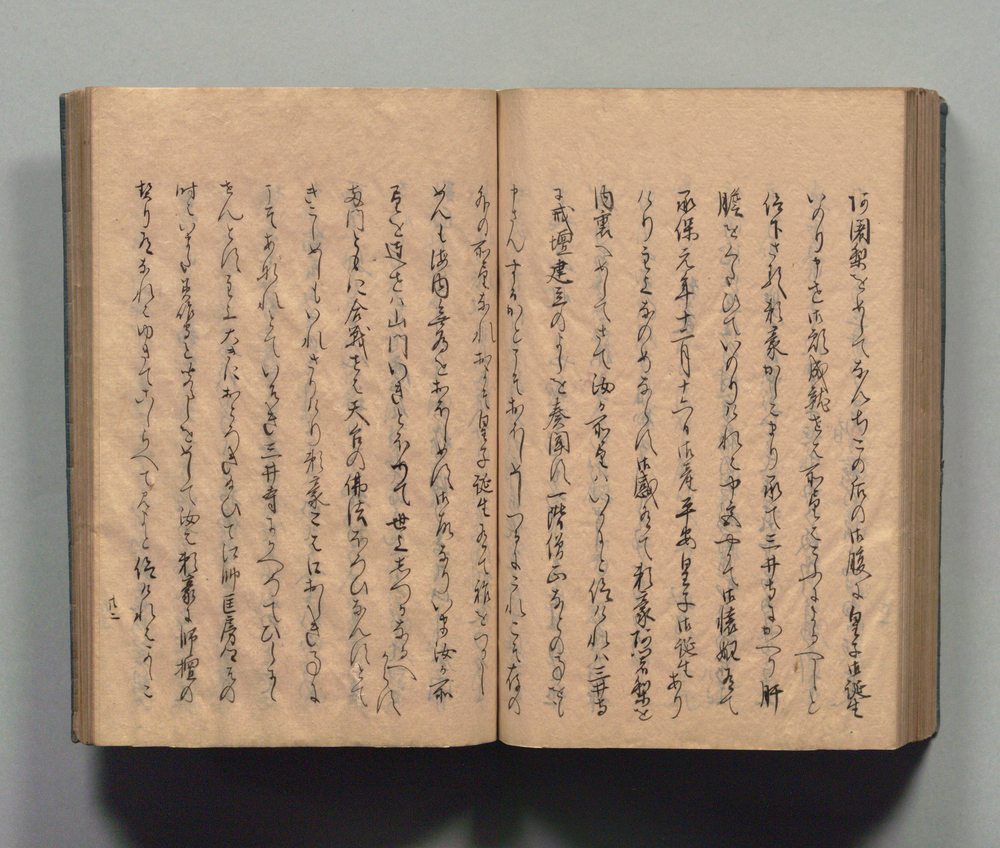 阿闍梨をめしてなんちこの后の御腹に皇子御誕生
いのり申せ御願成就せは所望はこふによるへしと
仰下さる頼豪かしこまり承て三井寺にかへり肝
膽をくたひていのりけれは中宮やかて御懐妊有て
承保元年十二月十六日御産平安皇子御誕生あり
けり主上なのめならす御感有て頼豪阿闍梨を
内裏へめしてさて汝か所望はいかにと仰けれは三井寺
に戒壇建立のよしを奏聞す一階僧正なとの事をも
申さんするかとこそおほしめしつるにこれこそ存の
外の所望なれおよそ皇子誕生有て祚をつかし
めんも海内無為をおほしめす御故なりいま汝か所
望を達せは山門いきとをつて世上しつかなるへからす
両門ともに合戦せは天台の佛法ほろひなんすとて
きこしめしもいれさりけり頼豪こは口おしき事に
こそあなれとていそき三井寺にかへつてひしに
せんとす主上大きにおとろき給ひて江帥匡房卿その
時はいまた美作守と申しをめして汝は頼豪に師檀の
契りあるなれはゆきてこしらへて見よと仰けれはかしこ